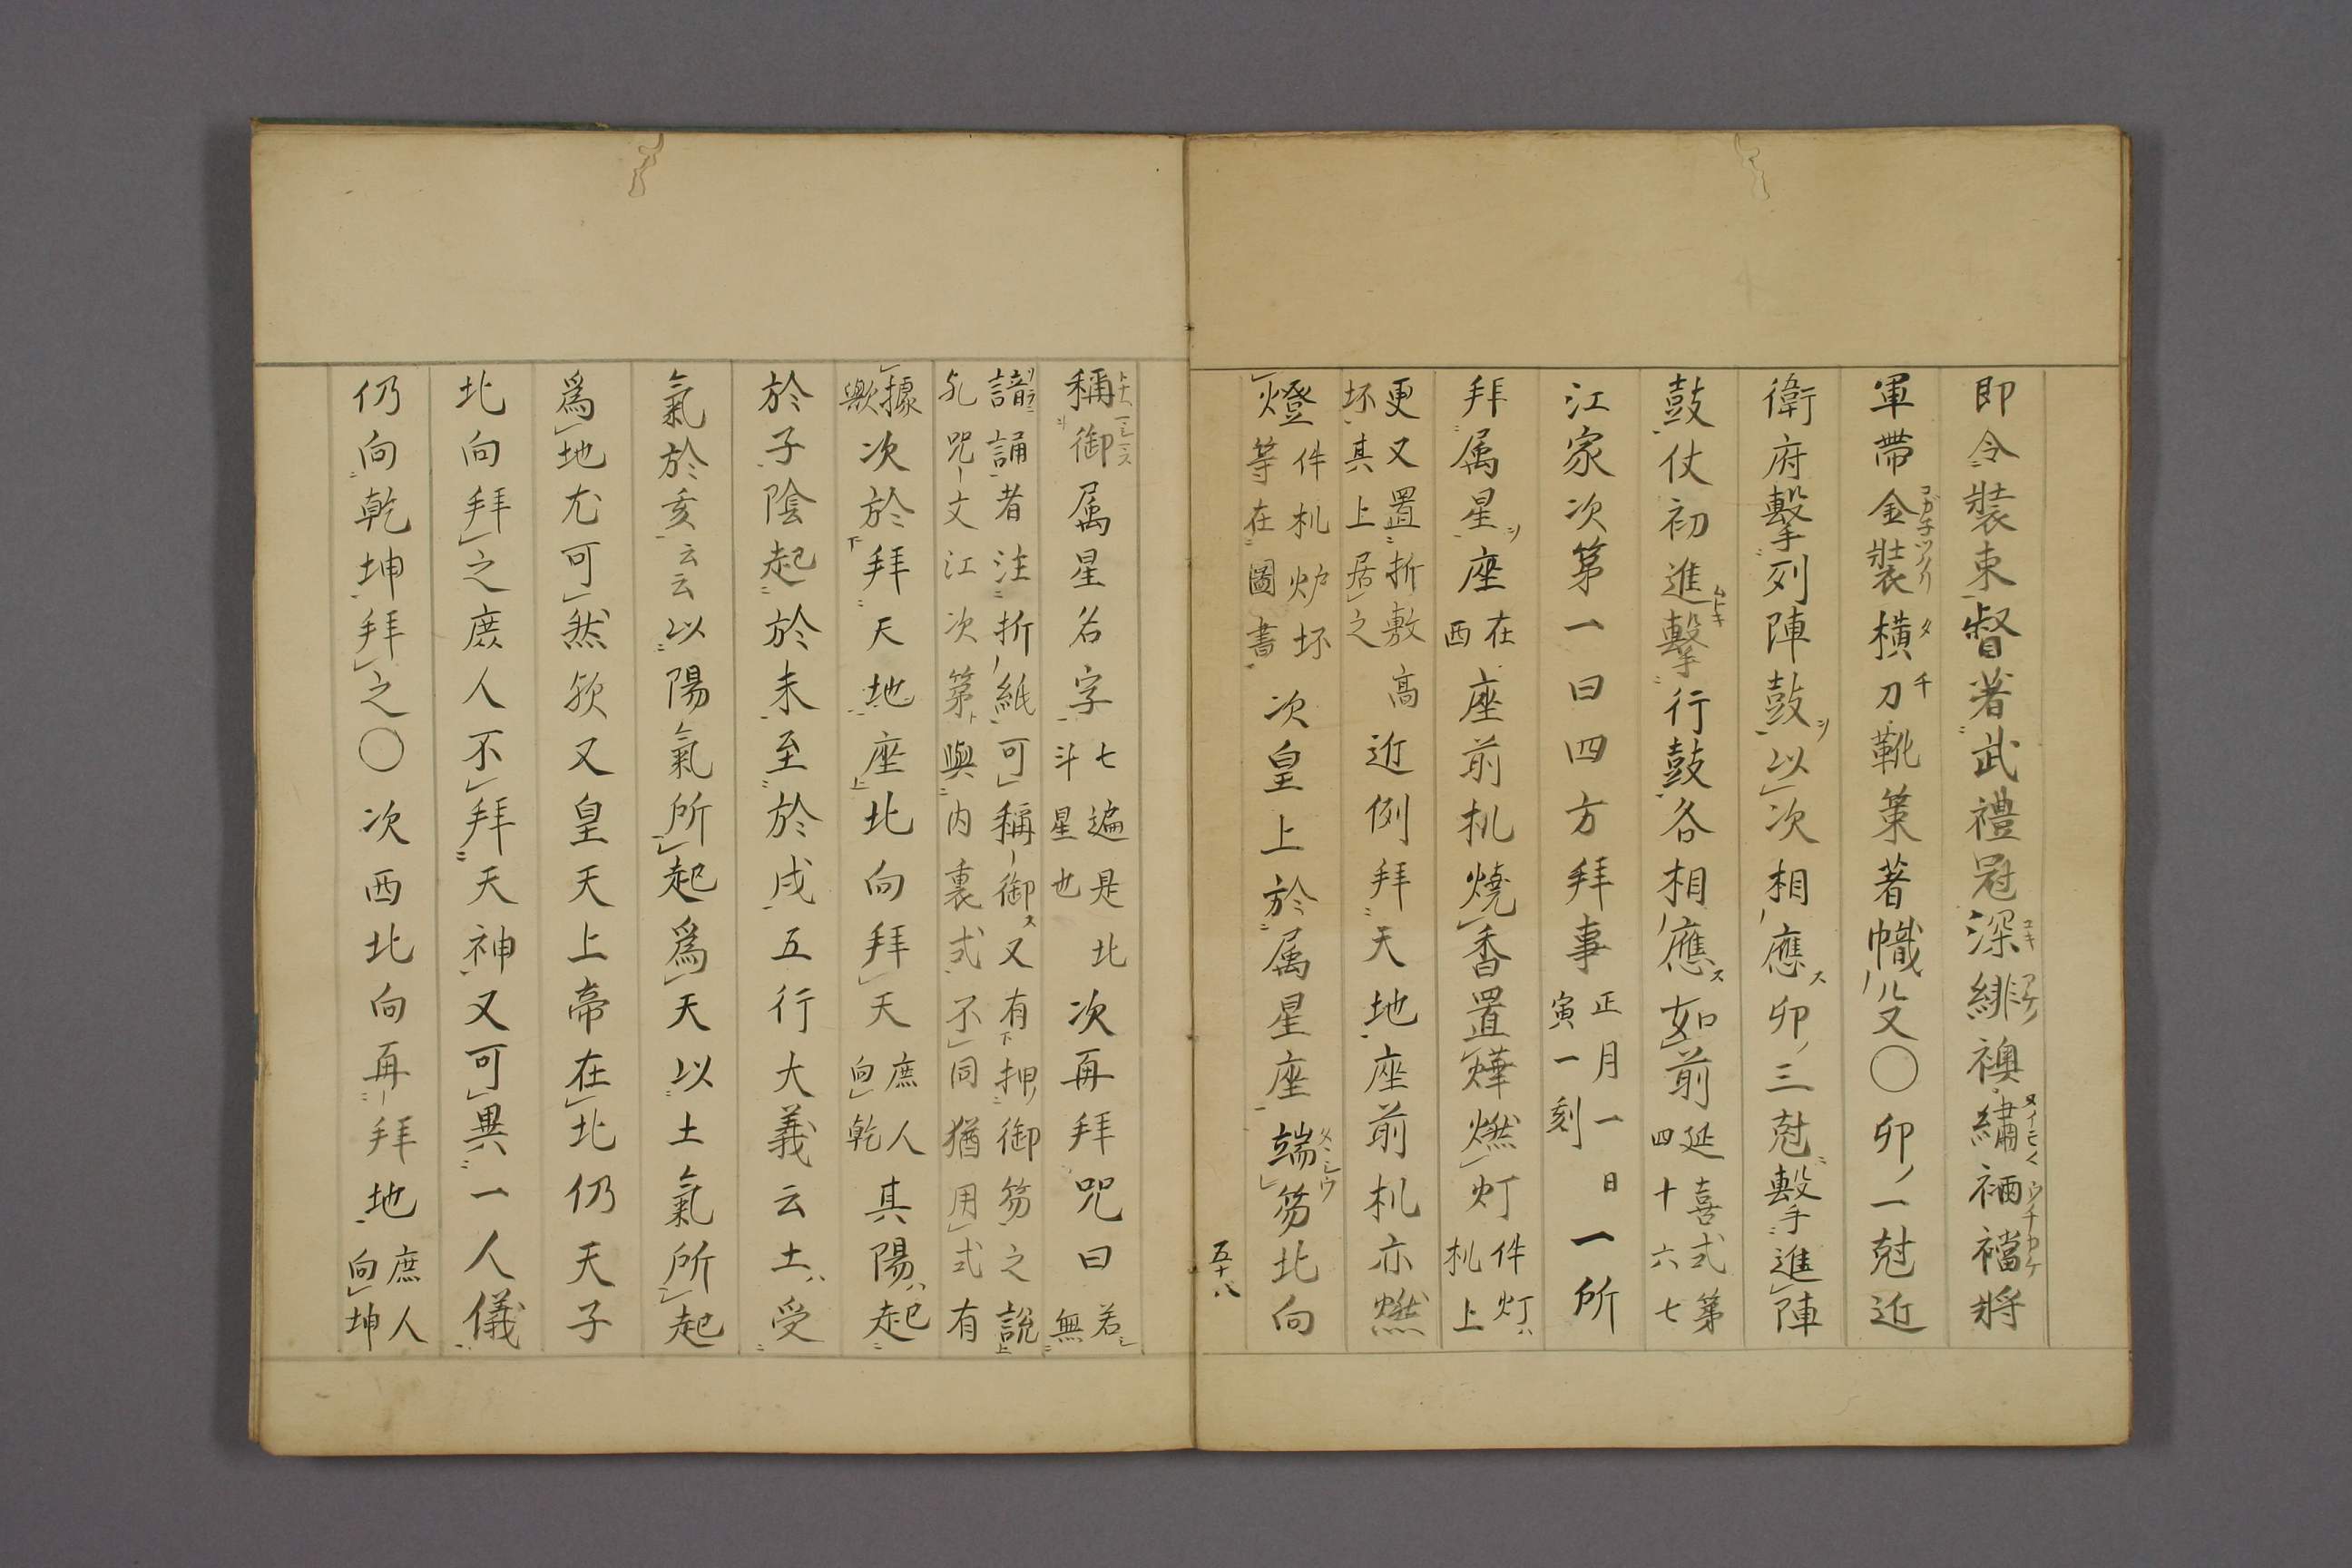 即令装束督著武禮冠深緋襖繍裲襠将
軍帯金装横刀靴䇿著幟殳〇卯一尅近
衛府擊列陣鼓以次相應卯三尅擊進陣
鼓仗初進擊行鼓各相應如前延喜式第
四十六七
江家次第一曰四方拜事正月一日
寅一刻一所
拜属星座在
西座前机燒香置華燃灯件灯
机上
更又置折敷高
坏其上居之近例拜天地座前机亦燃
燈件机炉坏
等在圖書次皇上於属星座端笏北向
五十八
稱御属星名字七遍是北
斗星也次再拜咒曰若
無
諳誦者注折紙可稱御又有押御笏之説
礼咒文江次第與内裏式不同猶用式有
據
歟次於拜天地座北向拜天庶人
向乾其陽起
於子陰起於未至於戌五行大義云土受
氣於亥云云以陽氣所起爲天以土氣所起
爲地尤可然歟又皇天上帝在北仍天子
北向拜之庶人不拜天神又可異一人儀
仍向乾坤拜之〇次西北向再拜地庶人
向坤